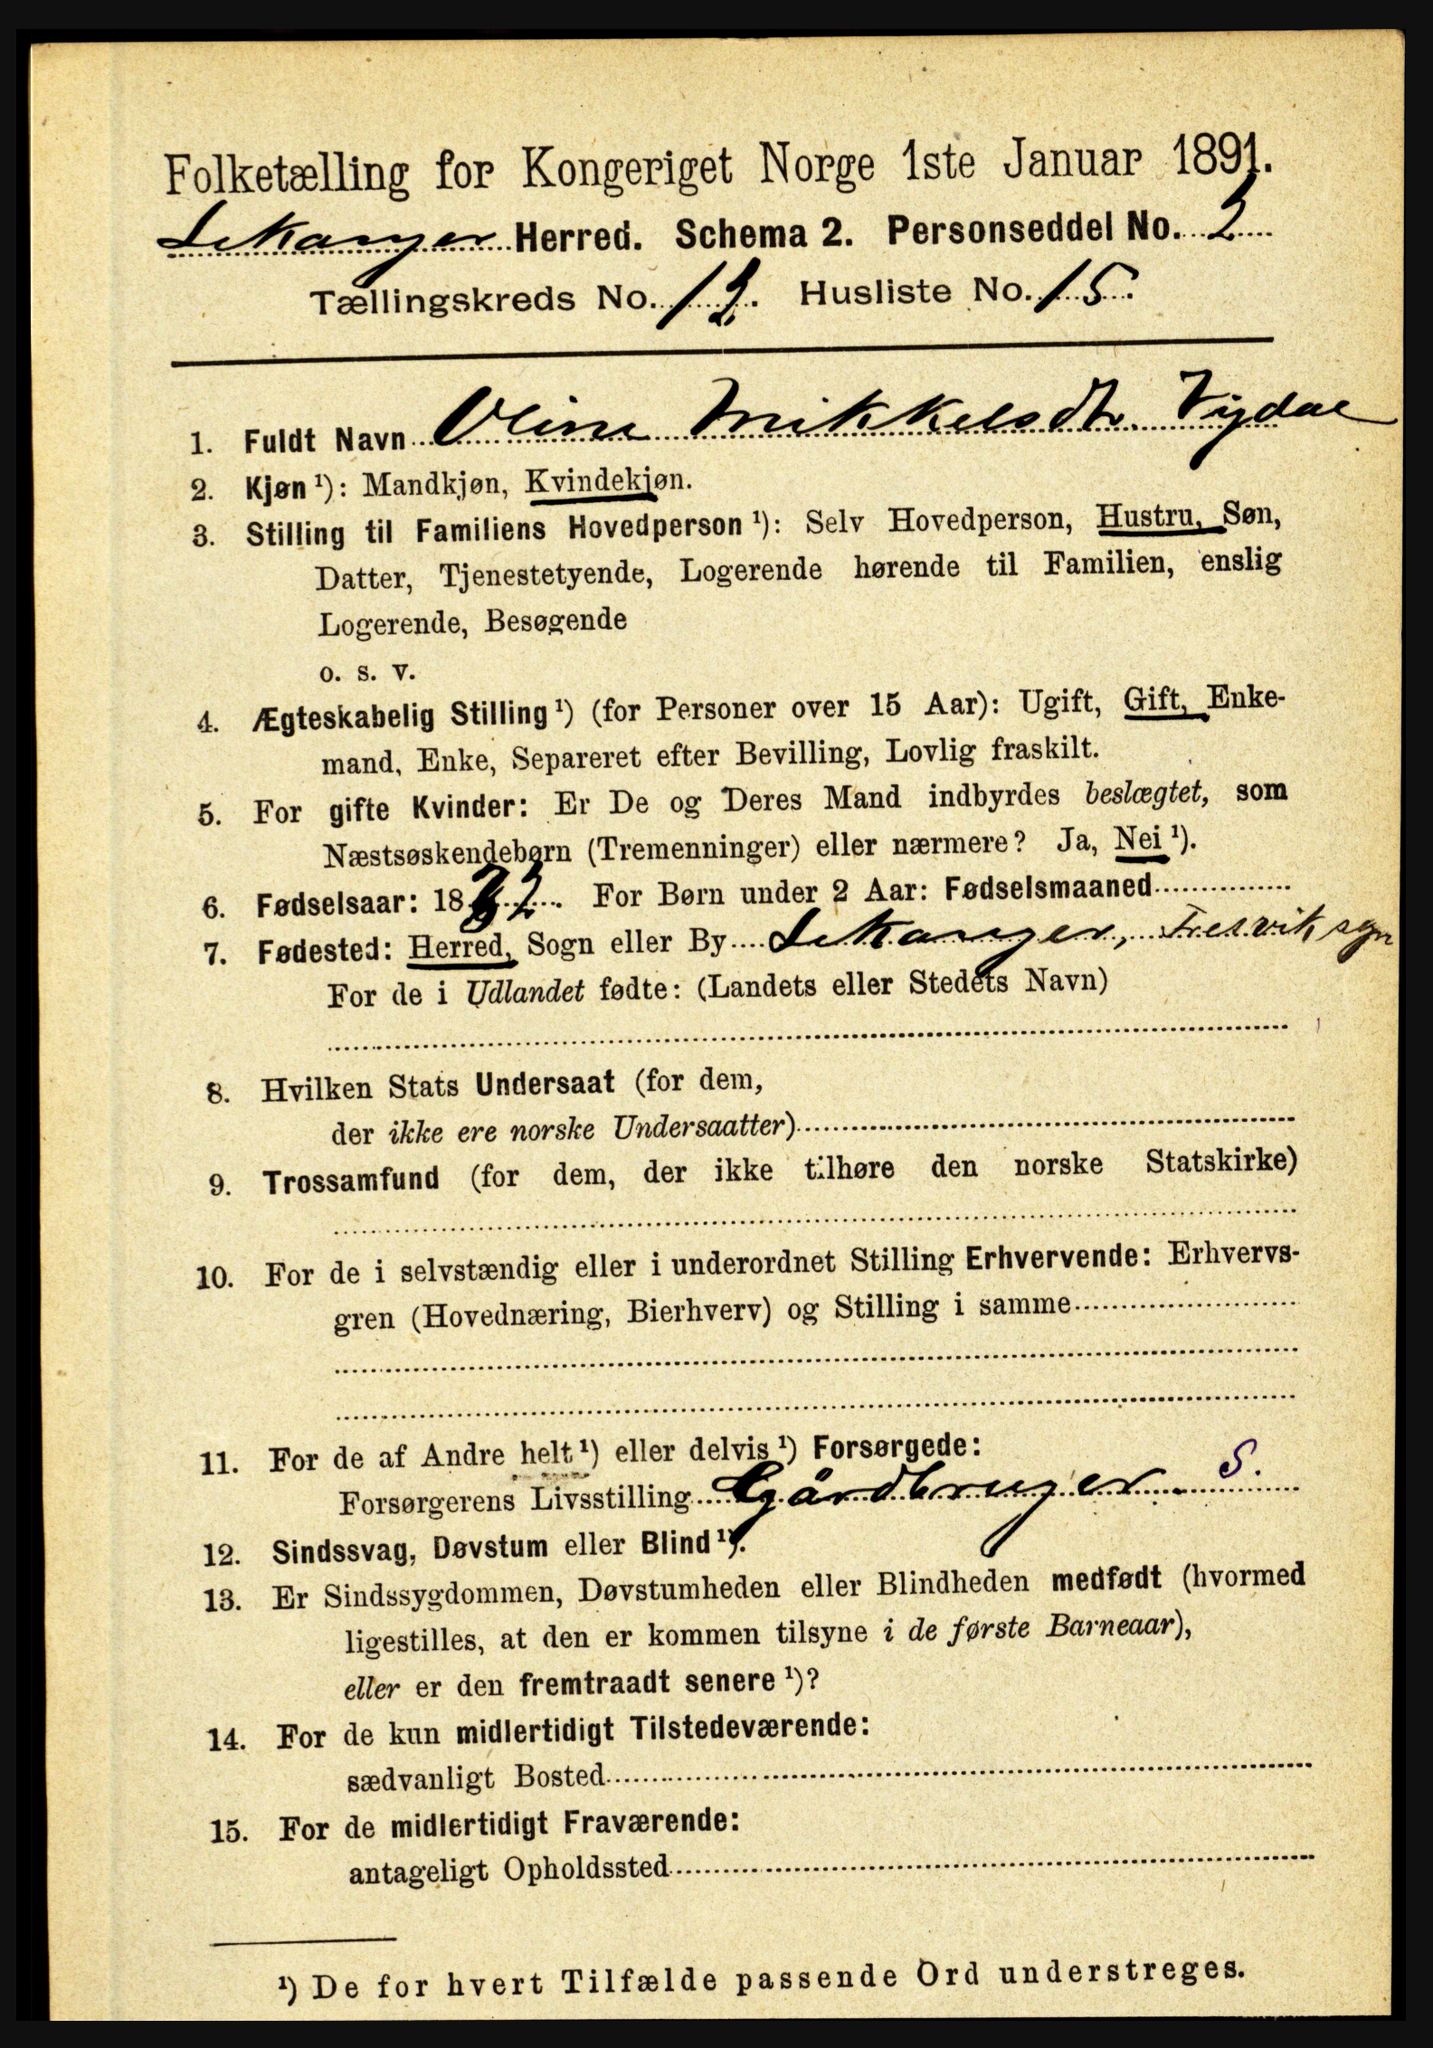 Folketælling for Kongeriget Norge 1ste Januar 1891.
Lekanger Herred. Schema 2. Personseddel No. 2
Tællingskreds No. 12. Husliste No. 15.
1. Fuldt Navn Oline Mikkelsdtr.
2. Kjøn ¹): Mandkjøn, Kvindekjøn.
3. Stilling til Familiens Hovedperson ¹): Selv Hovedperson, Hustru, Søn,
Datter, Tjenestetyende, Logerende hørende til Familien, enslig
Logerende, Besøgende
o. s. v.
4. Ægteskabelig Stilling ¹) (for Personer over 15 Aar): Ugift, Gift, Enke-
mand, Enke, Separeret efter Bevilling, Lovlig fraskilt.
5. For gifte Kvinder: Er De og Deres Mand indbyrdes beslægtet, som
Næstsøskendebørn (Tremenninger) eller nærmere? Ja, Nei ¹).
6. Fødselsaar: 18 . For Børn under 2 Aar: Fødselsmaaned
7. Fødested: Herred, Sogn eller By Lekanger, Fresvik sgn
For de i Udlandet fødte: (Landets eller Stedets Navn)
8. Hvilken Stats Undersaat (for dem,
der ikke ere norske Undersaatter)
9. Trossamfund (for dem, der ikke tilhøre den norske Statskirke)
10. For de i selvstændig eller i underordnet Stilling Erhvervende: Erhvervs-
gren (Hovednæring, Bierhverv) og Stilling i samme
11. For de af Andre helt ¹) eller delvis ¹) Forsørgede:
Forsørgerens Livsstilling Gårdbruger. S.
12. Sindssvag, Døvstum eller Blind ¹).
13. Er Sindssygdommen, Døvstumheden eller Blindheden medfødt (hvormed
ligestilles, at den er kommen tilsyne i de første Barneaar),
eller er den fremtraadt senere ¹)?
14. For de kun midlertidigt Tilstedeværende:
sædvanligt Bosted
15. For de midlertidigt Fraværende:
antageligt Opholdssted
¹) De for hvert Tilfælde passende Ord understreges.